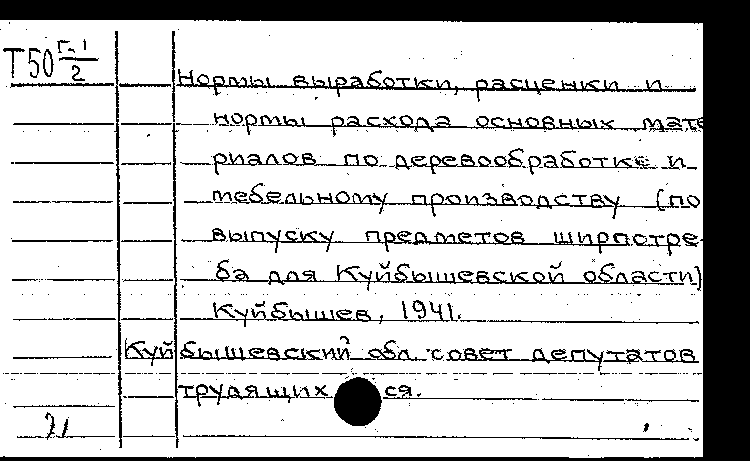 Т50 Г-1/2
Нормы выработки, расценки и
нормы расхода основных мате
риалов по деревообработке и
мебельному производству (по
выпуску предметов ширпотре-
ба для Куйбышевской области)
Куйбышев, 1941.
Куйбышевский обл. совет депутатов
трудящихся.
21